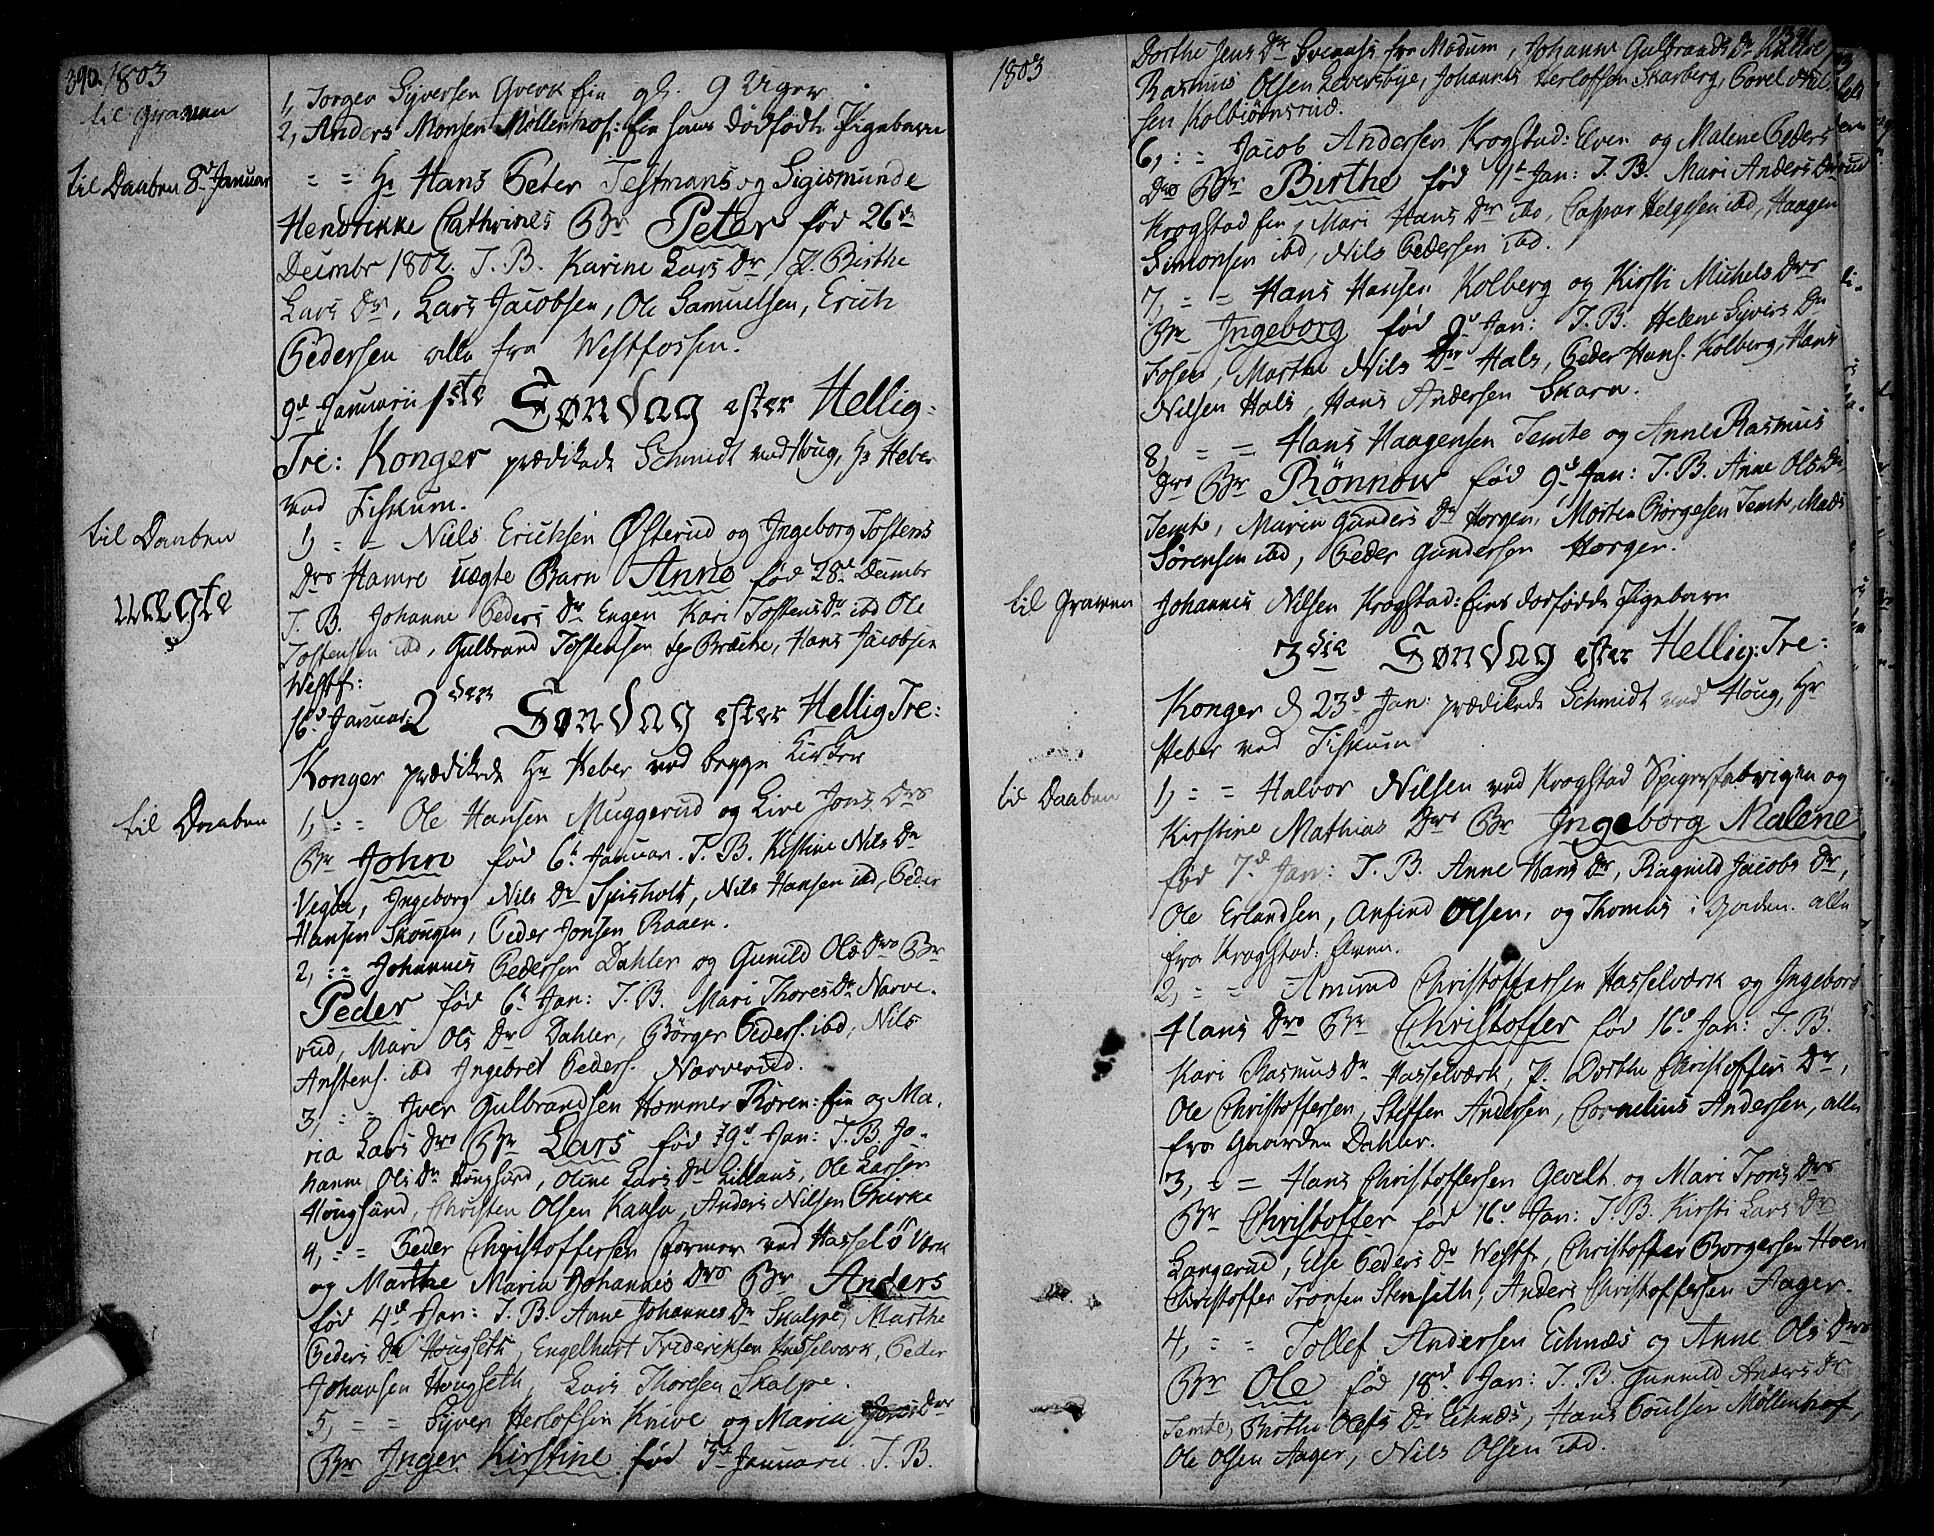 390. 1803
til Graven
1, Jørgen Syversen Qverk Ein gl. 9 Uger
2, Anders Monsen Møllenhof: Ein hans dödfödte Pigebarn
til Daaben 8d Januar
= = Hr Hans Peter Testmans og Sigismunde
Hendrikke Cathrines Bn Peter fød 26de
Decembr 1802. T. B. Karine Lars Dr, P. Birthe
Lars Dr, Lars Jacobsen, Ole Samuelsen, Erich
Pedersen alle fra Westfossen.
9d Januarii 1ste Søndag efter Hellig:
Tre: Konger prædikede Schmidt ved Houg, Hr Heber
ved Fiskum.
til Daaben
uægte
1, = = Niels Erichsen Østerud og Ingeborg Tostens
Drs Hamre uægte Barn Anne fød 28d Decembr
T. B. Johanne Peders Dr Engen Kari Tostens Dr ibd Ole
Tostensen ibd, Gulbrand Tostensen Bræche, Hans Jacobsen
Westf:
16d Januar: 2den Søndag efter Hellig Tre:
Konger prædikede Hr Heber ved begge Kirker
til Daaben
1, = = Ole Hansen Muggerud og Live Jons Drs
Bn John fød 6d Januar. T. B. Kirstine Nils Dr
Vegbe, Ingeborg Nils Dr Spisholt, Nils Hansen ibd, Peder
Hansen Skougen, Peder Jonsen Raaen.
2, = = Johannes Pedersen Dahler og Gunild Ols Drs Bn
Peder fød 6d Jan: T. B. Mari Thores Dr Narve-
rud, Mari Ols Dr Dahler, Börger Peders. ibd, Nils
Anstens. ibd Ingebret Peders. Narverud.
3, = = Iver Gulbrandsen Hammer Røren: Ein og Ma-
ria Lars Drs Bn Lars fød 9d Jan: T. B. Jo-
hanne Ols Dr Hougsund, Oline Lars Dr Lillaas, Ole Larsen
Hougsund, Christen Olsen Kaasa, Anders Nilsen Bierke
4, = = Peder Christoffersen Former ved Hasselö Værk
og Marthe Maria Johannes Drs Bn Anders
fød 4d Jan: T. B. Anne Johannes Dr Skalpe, Marthe
Peders Dr Hougseth, Engelhart Friderichsen Hasselværk, Peder
Johansen Hougseth, Lars Thoresen Skalpe.
5, = = Syver Herlofsen Knive og Maria Jons Drs
Bn Inger Kirstine fød 3d Januarii. T. B.
1803
Dorthe Jens Dr Svenns fra Modum, Johanne Gulbrands Dr
Rasmus Olsen Leversbye, Johannes Herlofsen Skarberg, Povel Niel-
sen Kolbiørnsrud.
6, = = Jacob Andersen Krogstad: Elven og Malene Peders
Drs Bn Birthe fød 11d Jan: T. B. Mari Anders Dr
Krogstad Ein, Mari Hans Dr ibd, Caspar Helgesen ibd, Haagen
Simonsen ibd, Nils Pedersen ibd.
7, = = Hans Hansen Kolberg og Kirsti Michels Drs
Bn Ingeborg fød 9d Jan: T. B. Helene Syvers Dr
Fosen, Marthe Nils Dr Hals, Peder Hans. Kolberg, Hans
Nilsen Hals, Hans Andersen Skara.
8, = = Hans Haagensen Temte og Anne Rasmus
Drs Bn Rönnow fød 9d Jan: T. B. Anne Ols Dr
Temte, Maria Gunders Dr Horgen, Morten Börgesen Temte, Mads
Sörensen ibd, Peder Gundersen Horgen.
til Graven
Johannes Nilsen Krogstad: Eins dødfødde Pigebarn
3die Søndag efter Hellig: Tre:
Konger d. 23d Jan: prædikede Schmidt ved Houg, Hr
Heber ved Fiskum
til Daaben
1, = = Halvor Nilsen ved Krogstad Spigerfabriqen og
Kirstine Mathias Drs Bn Ingeborg Malene
fød 7d Jan: T. B. Anne Hans Dr, Ragnild Jacobs Dr,
Ole Erlandsen, Anfind Olsen, og Thomas i Gorden. alle
fra Krogstad: Elven.
2, = = Amund Christoffersen Hasselværk og Ingebor
Hans Drs Bn Christoffer fød 16d Jan: T. B.
Kari Rasmus Dr Hasselværk, P. Dorthe Christoffer Dr,
Ole Christoffersen, Steffen Andersen, Cornelius Andersen, alle
fra Gaarden Dahler.
3, = = Hans Christoffersen Gevelt og Mari Trons Drs
Bn Christoffer fød 16d Jan: T. B. Kirsti Lars Dr
Langerud, Else Peders Dr Westf, Christoffer Borgersen Hoen
Christoffer Tronsen Stenseth, Anders Christoffersen Aager.
4, = = Tollef Andersen Eiknæs og Anne Ols Drs
Bn Ole fød 18d Jan: T. B. Gunnild Anders Dr
Temte, Birthe Olefs Dr Eiknæs, Hans Poulsen Møllenhof,
Ole Olsen Aager, Nils Olsen ibd.